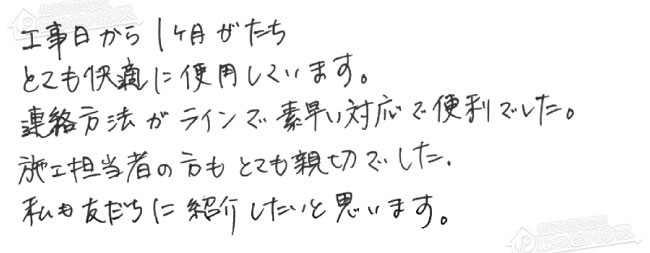 工事日から1ヶ月がたち
とても快適に使用しています。
連絡方法がラインで素早い対応で便利でした。
施工担当者の方もとても親切でした.
私も友だちに紹介したいと思います。